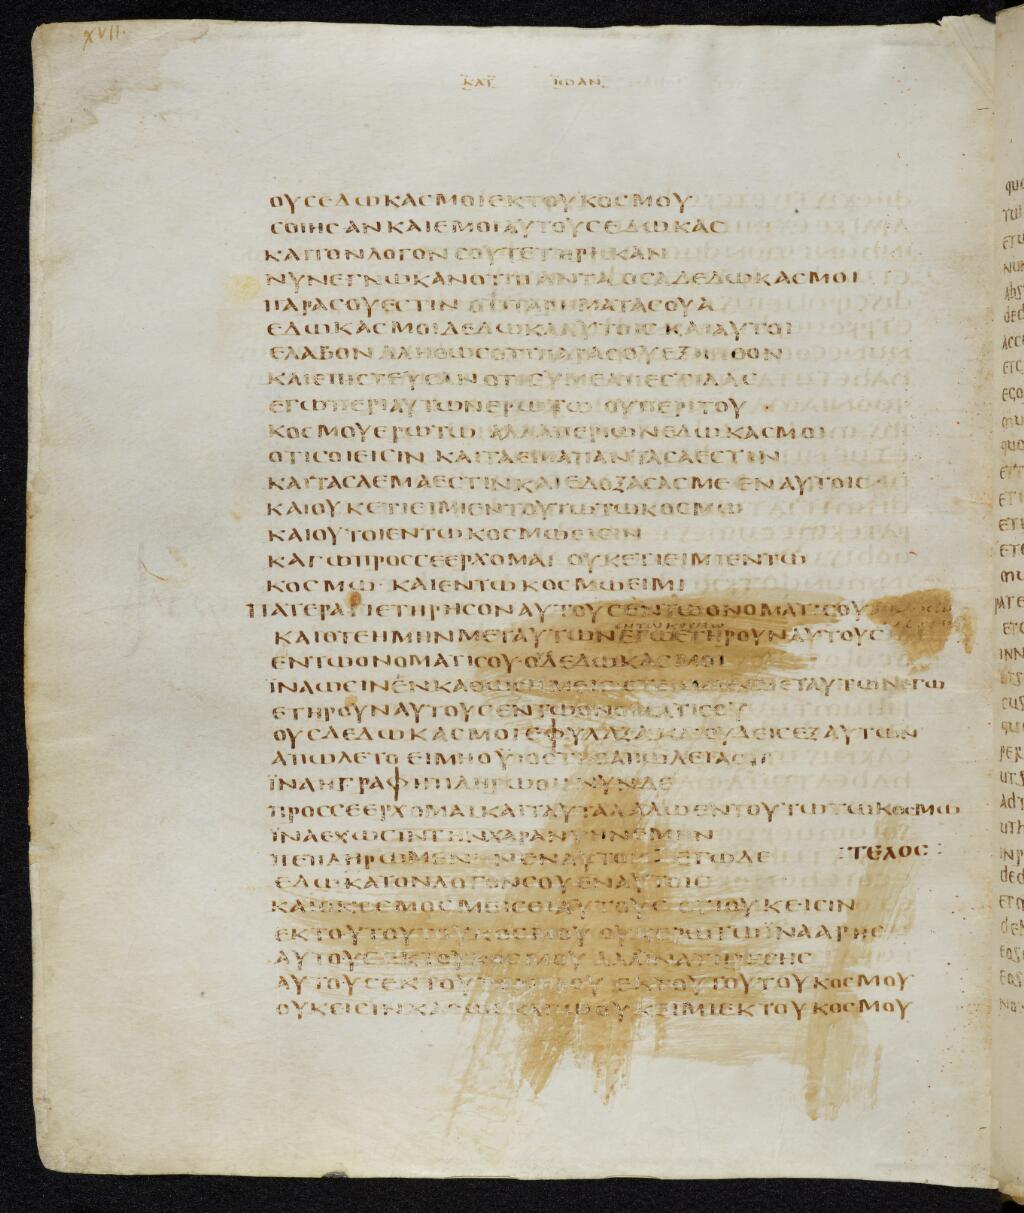 XVII.
ΚΑΤ ΙΩΑΝ
ΟΥϹΕΔΩΚΑϹΜΟΙΕΚΤΟΥΚΟϹΜΟΥ
ϹΟΙΗϹΑΝΚΑΙΕΜΟΙΑΥΤΟΥϹΕΔΩΚΑϹ
ΚΑΙΤΟΝΛΟΓΟΝϹΟΥΤΕΤΗΡΗΚΑΝ
ΝΥΝΕΓΝΩΚΑΝΟΤΙΠΑΝΤΑΟϹΑΔΕΔΩΚΑϹΜΟΙ
ΠΑΡΑϹΟΥΕϹΤΙΝ ΟΤΙΤΑΡΗΜΑΤΑϹΟΥΑ
ΕΔΩΚΑϹΜΟΙΔΕΔΩΚΑΑΥΤΟΙϹ ΚΑΙΑΥΤΟΙ
ΕΛΑΒΟΝ ΑΛΗΘΩϹΟΤΙΠΑΡΑϹΟΥΕΞΗΛΘΟΝ
ΚΑΙΕΠΙϹΤΕΥϹΑΝΟΤΙϹΥΜΕΑΠΕϹΤΙΛΑϹ
ΕΓΩΠΕΡΙΑΥΤΩΝΕΡΩΤΩ ΟΥΠΕΡΙΤΟΥ
ΚΟϹΜΟΥΕΡΩΤΩ ΑΛΛΑΠΕΡΙΩΝΕΔΩΚΑϹΜΟΙ
ΟΤΙϹΟΙΕΙϹΙΝ ΚΑΙΤΑΕΜΑΠΑΝΤΑϹΑΕϹΤΙΝ
ΚΑΙΤΑϹΑΕΜΑΕϹΤΙΝΚΑΙΕΔΟΞΑϹΑϹΜΕΕΝΑΥΤΟΙϹ
ΚΑΙΟΥΚΕΤΙΕΙΜΙΕΝΤΟΥΤΩΤΩΚΟϹΜΩ
ΚΑΙΟΥΤΟΙΕΝΤΩΚΟϹΜΩΕΙϹΙΝ
ΚΑΓΩΠΡΟϹϹΕΕΡΧΟΜΑΙ ΟΥΚΕΤΙΕΙΜΙΕΝΤΩ
ΚΟϹΜΩ ΚΑΙΕΝΤΩΚΟϹΜΩΕΙΜΙ
ΠΑΤΕΡΑΓΙΕΤΗΡΗϹΟΝΑΥΤΟΥϹΕΝΤΩΟΝΟΜΑΤΙϹΟΥ
ΕΝΤΩΚΟϹΜΩ
ΚΑΙΟΤΕΗΜΗΝΜΕΤΑΥΤΩΝΕΓΩΕΤΗΡΟΥΝΑΥΤΟΥϹ
ΕΝΤΩΟΝΟΜΑΤΙϹΟΥ ΟΔΕΔΩΚΑϹΜΟΙ
ΪΝΑΩϹΙΝΕΝΚΑΘΩϹΗΜΕΙϹ ΟΤΕΗΜΗΝΜΕΤΑΥΤΩΝΕΓΩ
ΕΤΗΡΟΥΝΑΥΤΟΥϹΕΝΤΩΟΝΟΜΑΤΙϹΟΥ
ΟΥϹΔΕΔΩΚΑϹΜΟΙΕΦΥΛΑΞΑΚΑΙΟΥΔΕΙϹΕΞΑΥΤΩΝ
ΑΠΩΛΕΤΟ ΕΙΜΗΟΥΙΟϹΤΗϹΑΠΩΛΕΙΑϹ
ΪΝΑΗΓΡΑΦΗΠΛΗΡΩΘΗ ΝΥΝΔΕ
ΠΡΟϹϹΕΕΡΧΟΜΑΙΚΑΙΤΑΥΤΑΛΑΛΩΕΝΤΟΥΤΩΤΩΚΟϹΜΩ
ΪΝΑΕΧΩϹΙΝΤΗΝΧΑΡΑΝΤΗΝΕΜΗΝ
ΠΕΠΛΗΡΩΜΕΝΗΝΕΝΑΥΤΟΙϹ ΕΓΩΔΕ :ΤΕΛΟϹ:
ΕΔΩΚΑΤΟΝΛΟΓΟΝϹΟΥΕΝΑΥΤΟΙϹ
ΚΑΙΟΚΟϹΜΟϹΜΕΙϹΕΙΑΥΤΟΥϹ ΟΤΙΟΥΚΕΙϹΙΝ
ΕΚΤΟΥΤΟΥΤΟΥΚΟϹΜΟΥ ΟΥΚΕΡΩΤΩΪΝΑΑΡΗϹ
ΑΥΤΟΥϹΕΚΤΟΥΚΟϹΜΟΥ ΑΛΛΙΝΑΤΗΡΗϹΗϹ
ΑΥΤΟΥϹΕΚΤΟΥΠΟΝΗΡΟΥ ΕΚΤΟΥΤΟΥΤΟΥΚΟϹΜΟΥ
ΟΥΚΕΙϹΙΝΚΑΘΩϹΚΑΓΩΟΥΚΕΙΜΙΕΚΤΟΥΚΟϹΜΟΥ